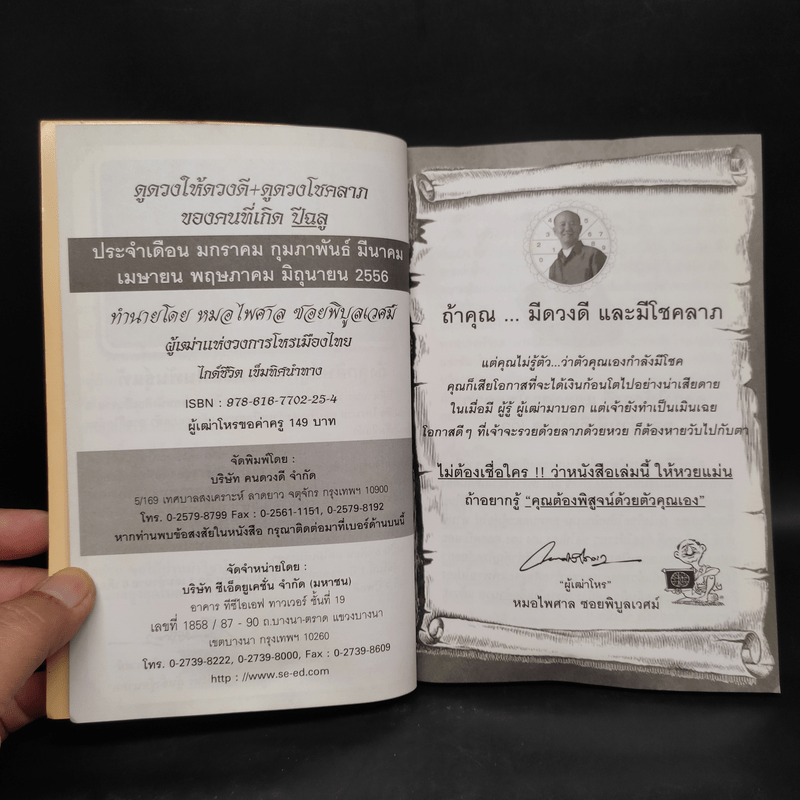 ดูดวงให้ดวงดี+ดูดวงโชคลาภ
ของคนที่เกิด ปีฉลู
ประจำเดือน มกราคม กุมภาพันธ์ มีนาคม
เมษายน พฤษภาคม มิถุนายน 2556
ทำนายโดย หมอไพศาล ซอยพิบูลเวศม์
ผู้เฒ่าแห่งวงการโหรเมืองไทย
ไกด์ชีวิต เข็มทิศนำทาง
ISBN : 978-616-7702-25-4
ผู้เฒ่าโหรขอค่าครู 149 บาท
จัดพิมพ์โดย :
บริษัท คนดวงดี จำกัด
5/169 เทศบาลสงเคราะห์ ลาดยาว จตุจักร กรุงเทพฯ 10900
โทร. 0-2579-8799 Fax : 0-2561-1151, 0-2579-8192
หากท่านพบข้อสงสัยในหนังสือ กรุณาติดต่อมาที่เบอร์ด้านบนนี้
จัดจำหน่ายโดย :
บริษัท ซีเอ็ดยูเคชั่น จำกัด (มหาชน)
อาคาร ทีซีไอเอฟ ทาวเวอร์ ชั้นที่ 19
เลขที่ 1858 / 87 - 90 ถ.บางนา-ตราด แขวงบางนา
เขตบางนา กรุงเทพฯ 10260
โทร. 0-2739-8222, 0-2739-8000, Fax : 0-2739-8609
http : //www.se-ed.com
ถ้าคุณ ... มีดวงดี และมีโชคลาภ
แต่คุณไม่รู้ตัว...ว่าตัวคุณเองกำลังมีโชค
คุณก็เสียโอกาสที่จะได้เงินก้อนโตไปอย่างน่าเสียดาย
ในเมื่อมี ผู้รู้ ผู้เฒ่ามาบอก แต่เจ้ายังทำเป็นเมินเฉย
โอกาสดีๆ ที่เจ้าจะรวยด้วยลาภด้วยหวย ก็ต้องหายวับไปกับตา
ไม่ต้องเชื่อใคร !! ว่าหนังสือเล่มนี้ ให้หวยแม่น
ถ้าอยากรู้ "คุณต้องพิสูจน์ด้วยตัวคุณเอง"
"ผู้เฒ่าโหร"
หมอไพศาล ซอยพิบูลเวศม์